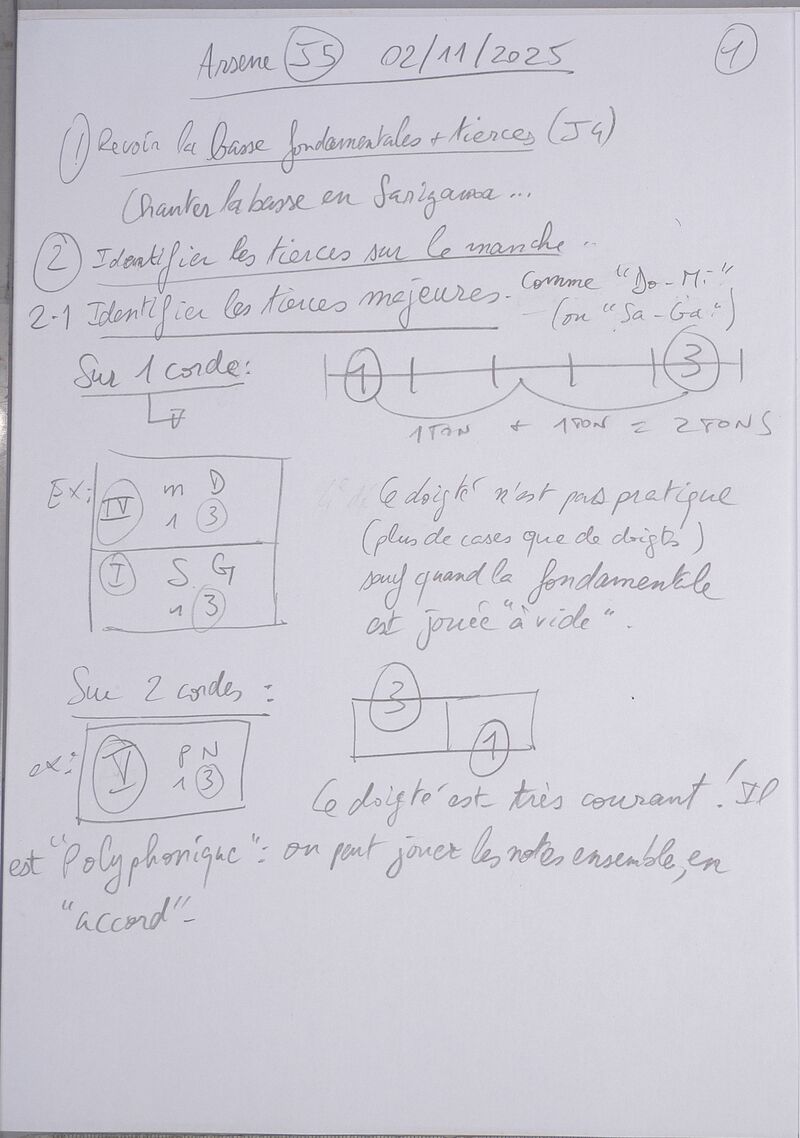 Arsene J5 02/11/2025 1
1 Revoir la basse fondamentales + tierces (J4)
Chanter la basse en Sarigama...
2 Identifier les tierces sur le manche..
2-1 Identifier les tierces majeures. comme "Do-Mi"
(ou "Sa-Ga")
Sur 1 corde:
1 3
1 TON + 1 TON = 2 TONS
Ex: IV m D
1 3
I S G
1 3
Ce doigté n'est pas pratique
(plus de cases que de doigts)
sauf quand la fondamentale
est jouée "à vide".
Sur 2 cordes:
3
1
ex: V P N
1 3
Ce doigté est très courant! Il
est "Polyphonique": on peut jouer les notes ensemble, en
"accord"-